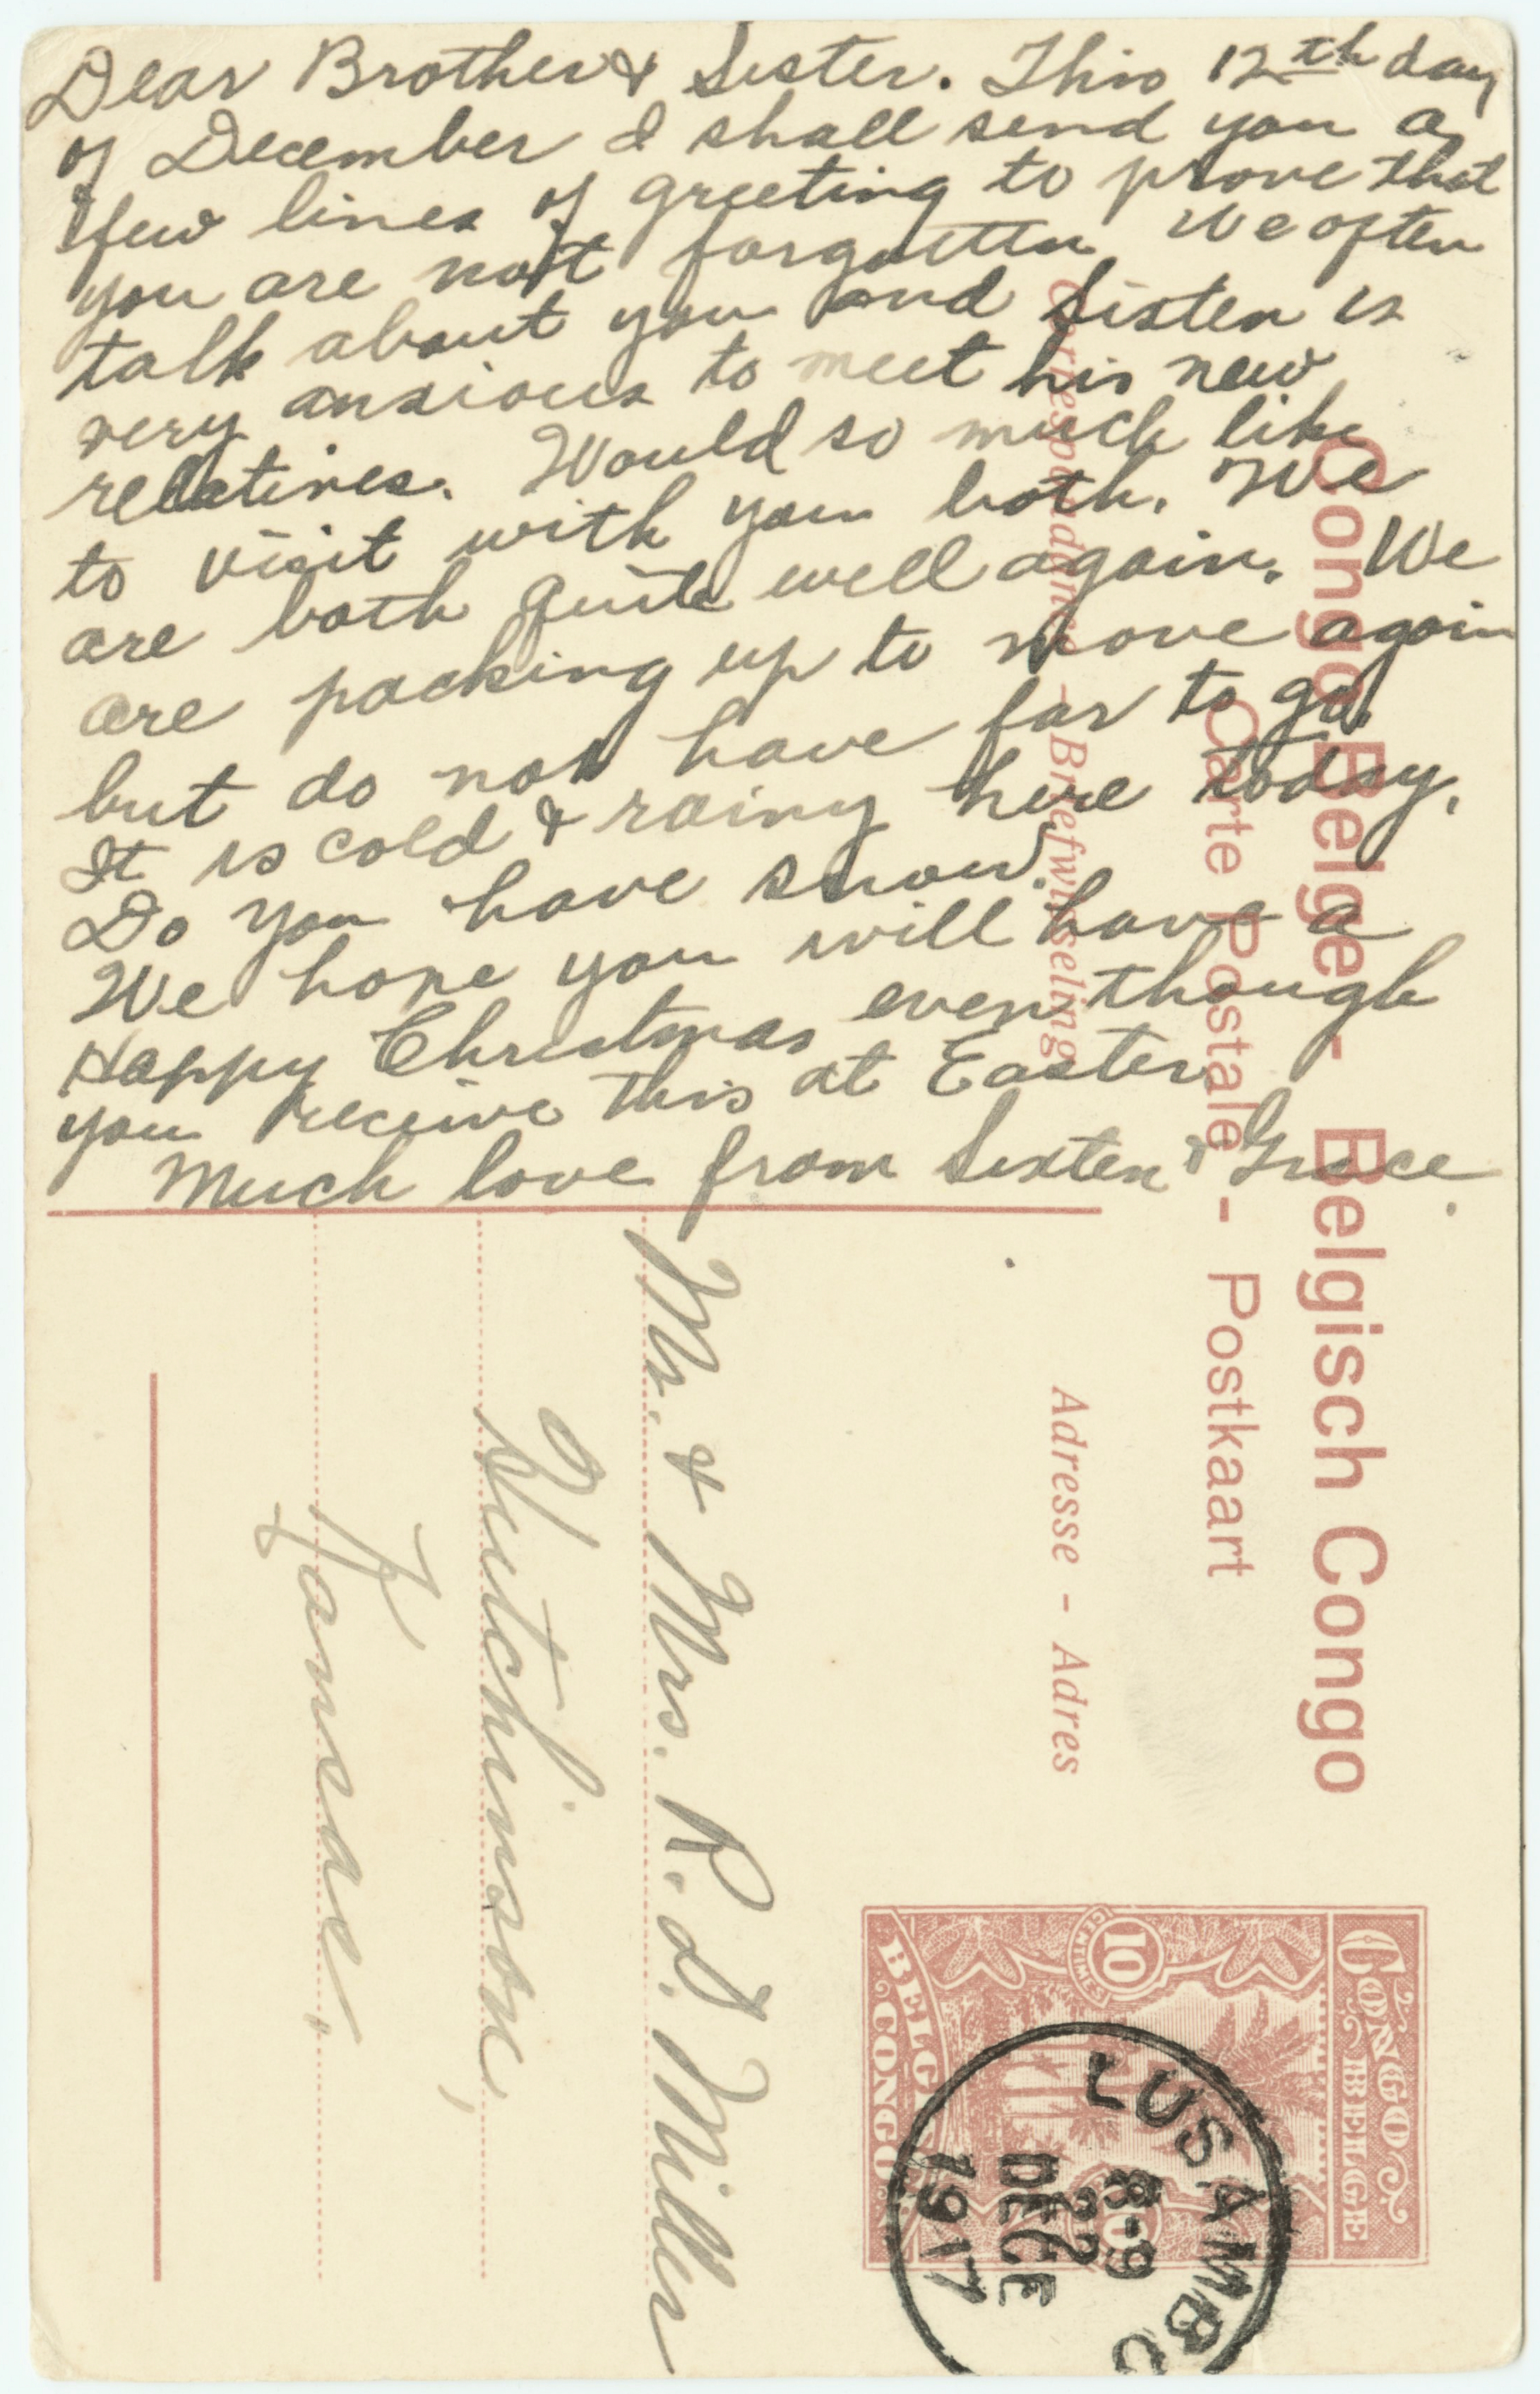 Dear Brother & Sister. This 12th day
of December I shall send you a
few lines of greeting to prove that
you are not forgotten We often
talk about you and Sixten is
very anxious to meet his new
relatives. Would so much like
to visit with you both. We
are both quite well again. We
are packing up to move again
but do not have far to go.
It is cold & rainy here today.
Do you have snow.
We hope you will have a
Happy Christmas even though
you receive this at Easter.
Much love from Sixten & Grace.
Congo Belge - Belgisch Congo
Carte Postale - Postkaart
Correspondance - Briefwisseling
Adresse - Adres
CONGO BELGE
10
CENTIMES
BELGISCH CONGO
LUSAMBO
8-9
22
DECE
1917
Mr. & Mrs. R. d. Miller
Hutchinson,
Kansas.